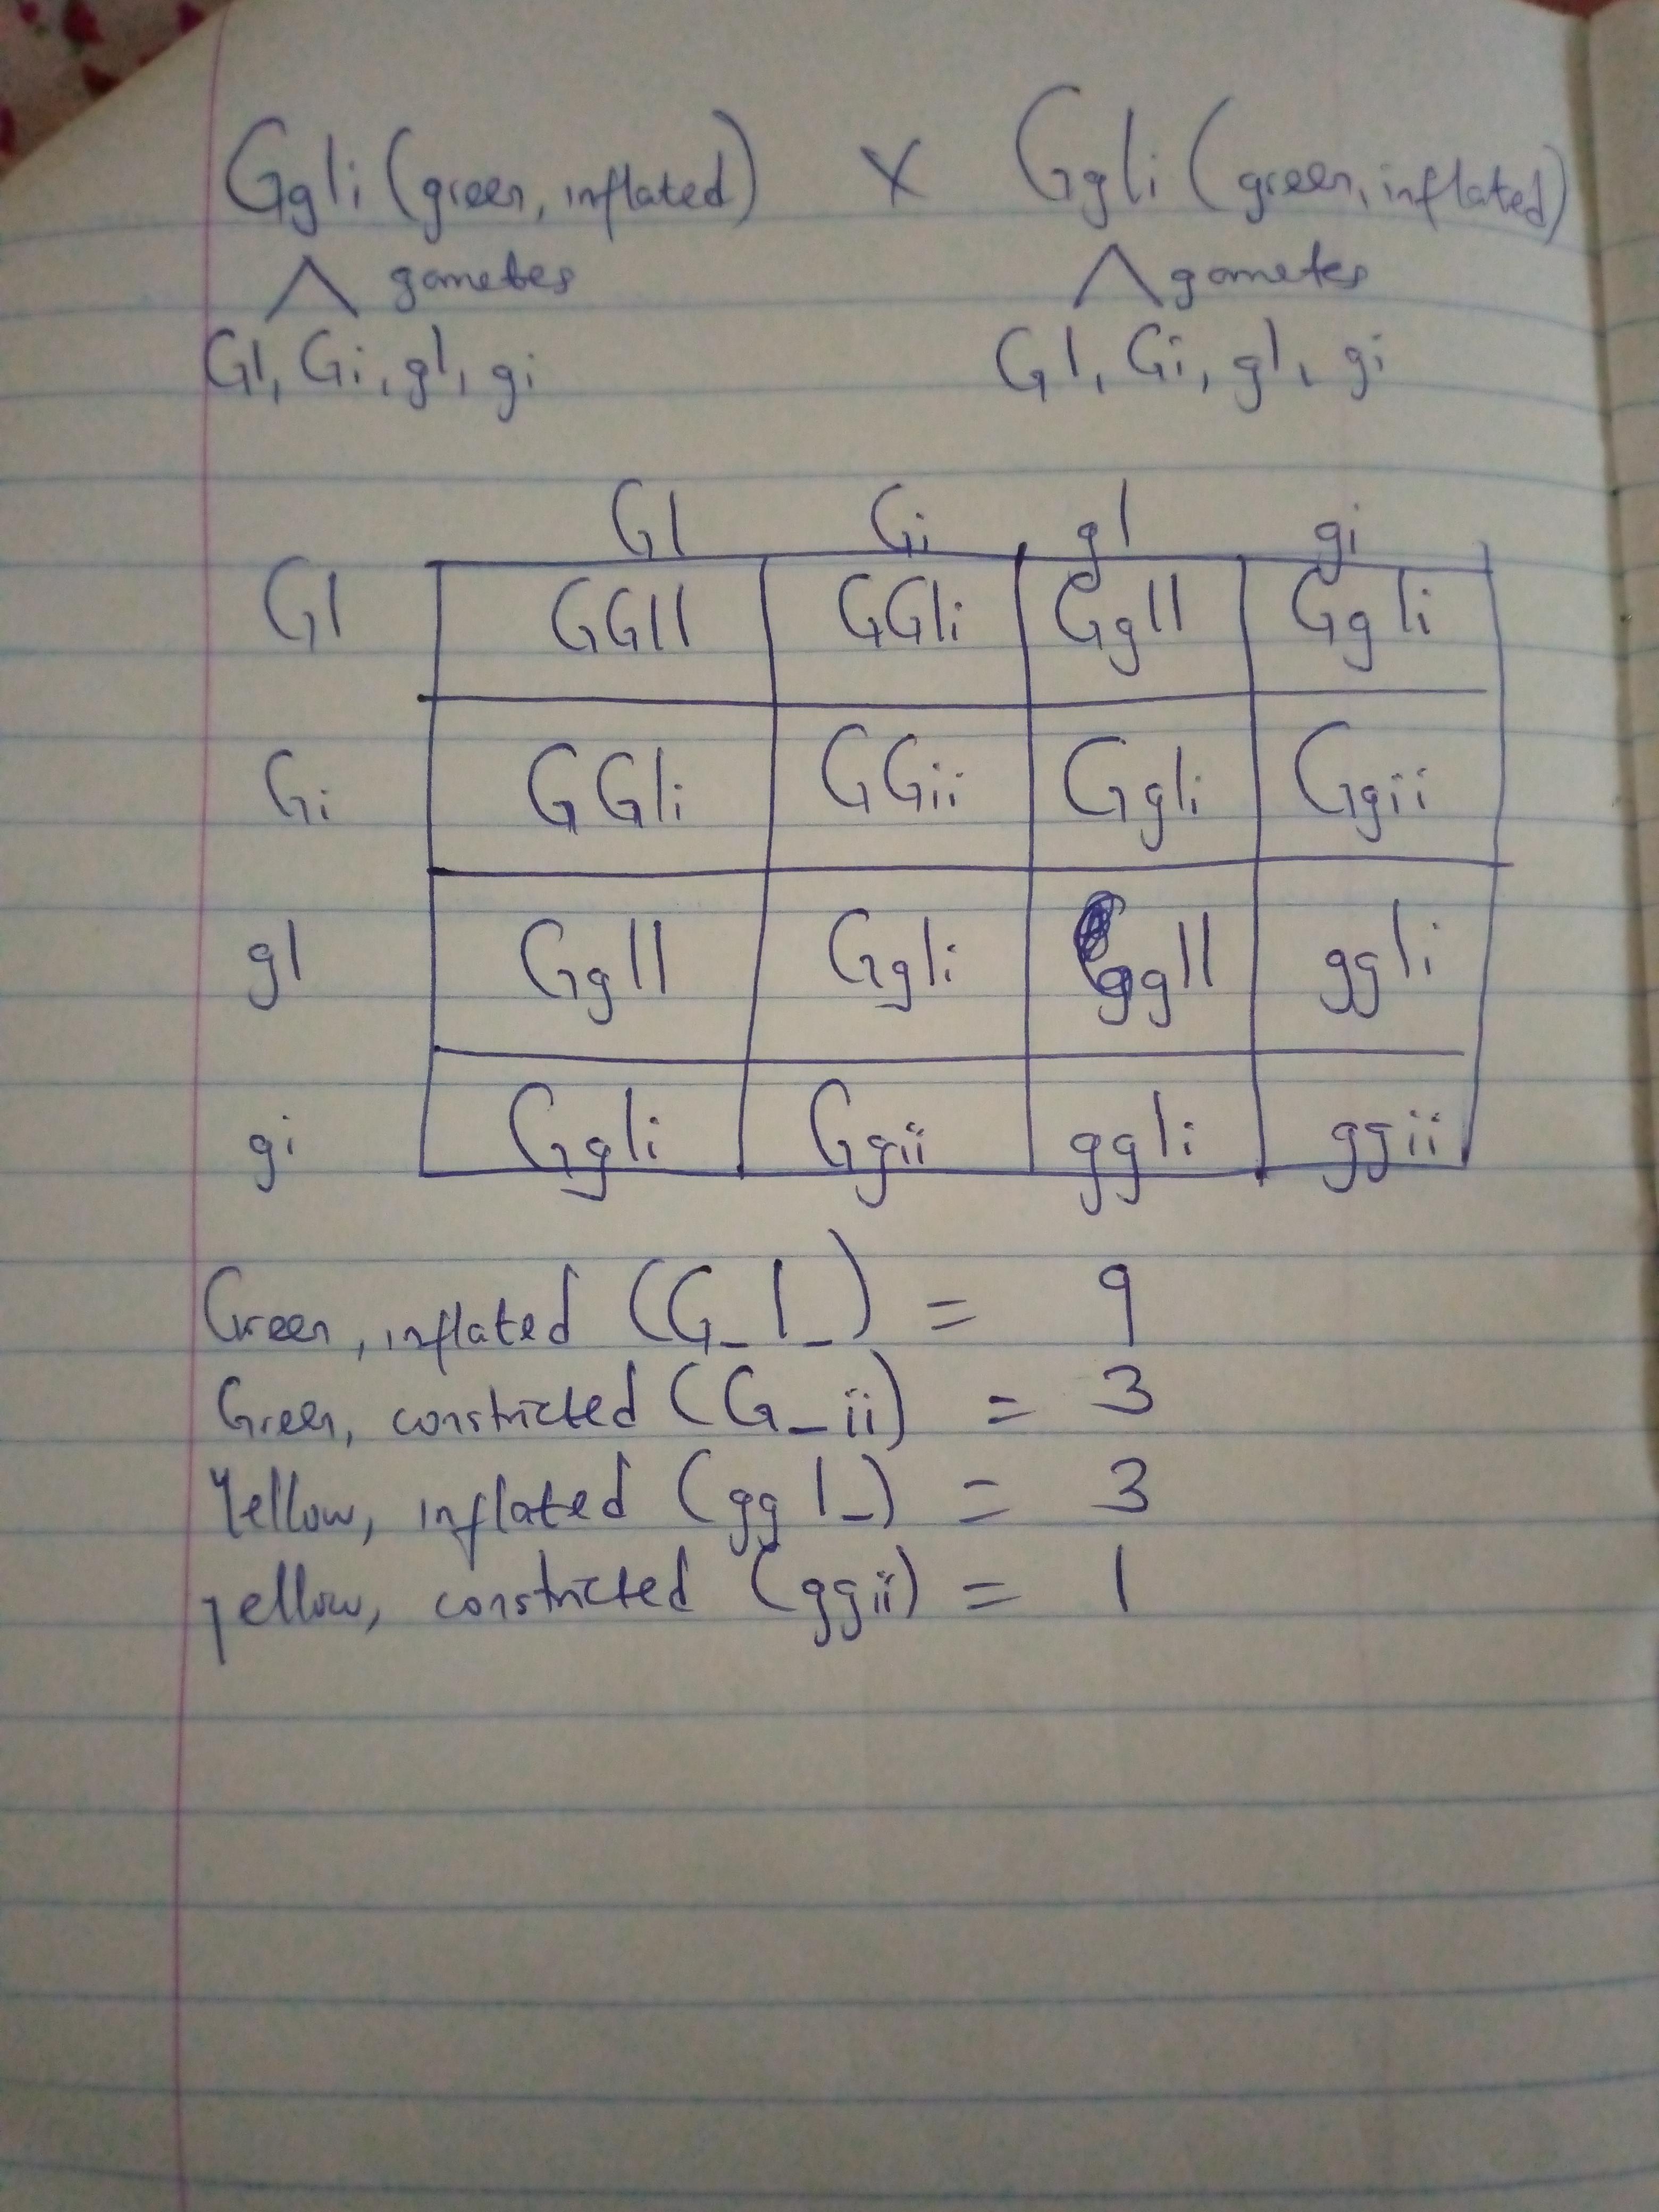 GgIi (green, inflated) x GgIi (green, inflated)
gametes gametes
GI, Gi, gI, gi GI, Gi, gI, gi
GI Gi gI gi
GI GGII GGIi GgII GgIi
Gi GGIi GGii GgIi Ggii
gI GgII GgIi ggII ggIi
gi GgIi Ggii ggIi ggii
Green, inflated (G_I_) = 9
Green, constricted (G_ii) = 3
Yellow, inflated (gg I_) = 3
yellow, constricted (ggii) = 1